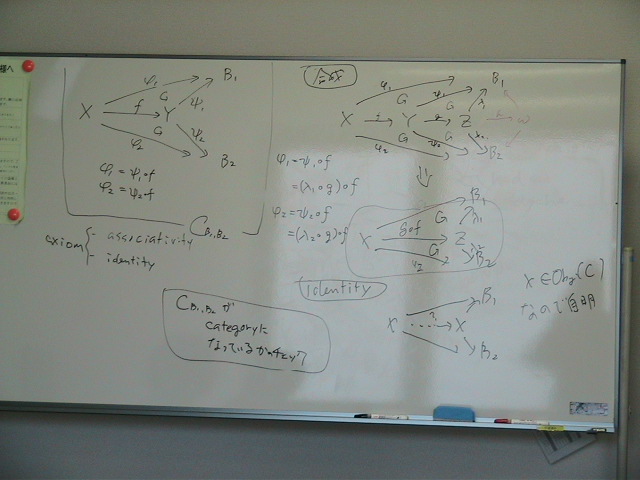 X
φ₁
B₁
G
f
Y
ψ₁
G
ψ₂
φ₂
B₂
φ₁ = ψ₁∘f
φ₂ = ψ₂∘f
C_{B₁,B₂}
axiom { - associativity
- identity
C_{B₁,B₂} が
categoryに
なっているかのチェック
合成
φ₁
B₁
X
f
G
Y
ψ₁
G
g
Z
λ₁
W
φ₂
G
ψ₂
G
λ₂
B₂
⇓
φ₁ = ψ₁∘f
= (λ₁∘g)∘f
φ₂ = ψ₂∘f
= (λ₂∘g)∘f
B₁
X
g∘f
G
λ₁
Z
G
φ₂
λ₂
B₂
identity
B₁
X
?
X
B₂
X ∈ Obj(C)
なので自明